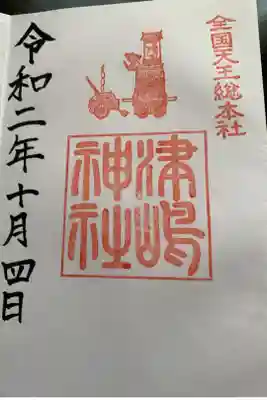 全国天王総本社
津嶋
神社
令和二年十月四日